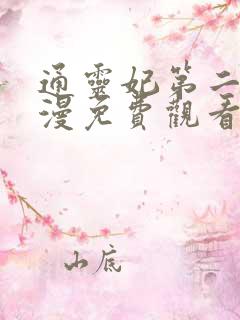 通靈妃第二
漫免費觀看
山底